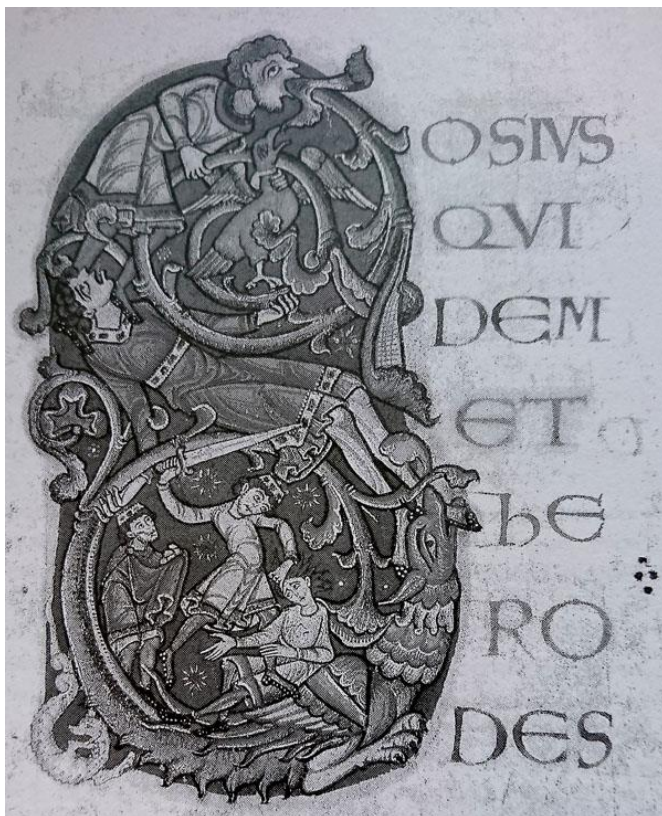 OSIVS
QVI
DEM
ET
hE
RO
DES